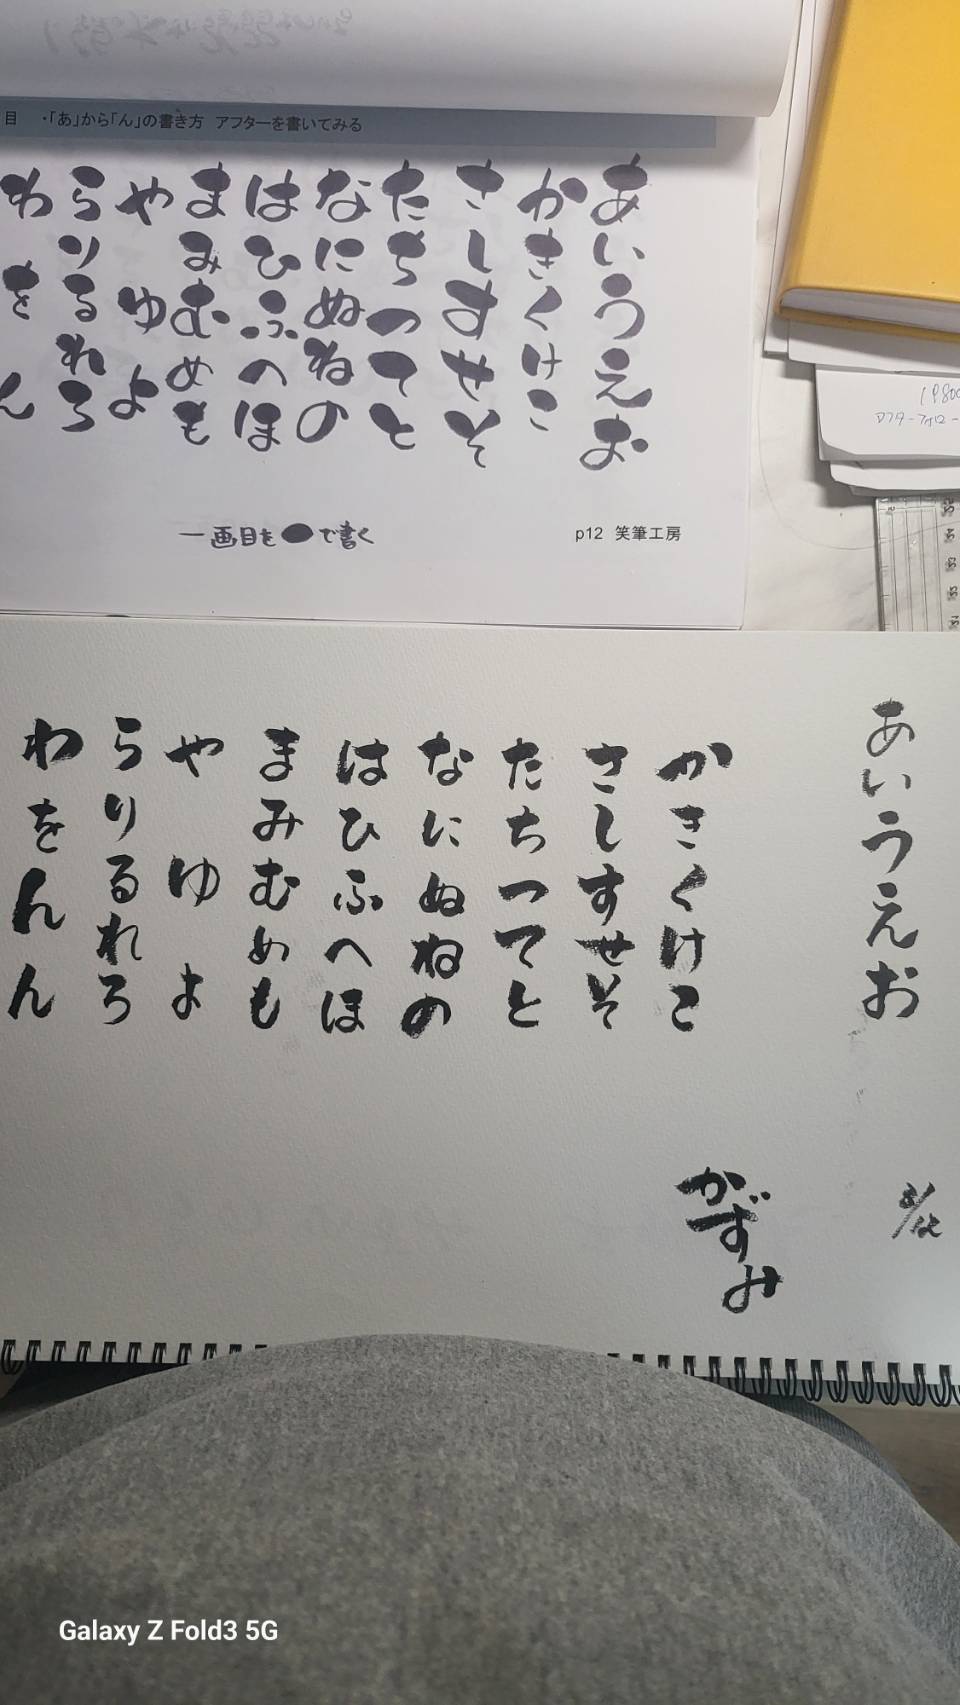 目 ・「あ」から「ん」の書き方 アフターを書いてみる
あいうえお
かきくけこ
さしすせそ
たちつてと
なにぬねの
はひふへほ
まみむめも
やゆよ
らりるれろ
わをん
一画目を●で書く
p12 笑筆工房
19800
アフターフォロー
あいうえお
かきくけこ
さしすせそ
たちつてと
なにぬねの
はひふへほ
まみむめも
やゆよ
らりるれろ
わをんん
かずみ
Galaxy Z Fold3 5G